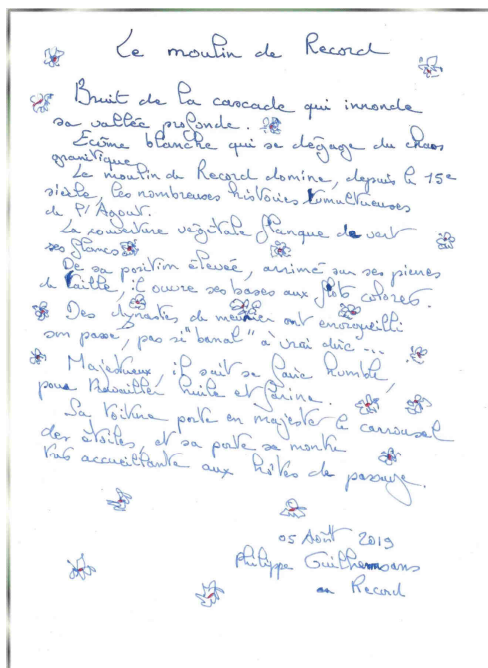 Le moulin de Record
Bruit de la cascade qui innonde
sa vallée profonde.
Ecûme blanche qui se dégage du chaos
granitique
Le moulin de Record domine, depuis le 15e
siècle, les nombreuses histoires tumultueuses
de l'Agout.
La couverture végétale flanque de vert
ses flancs
De sa position élevée, arrimé sur ses pierres
de taille, il ouvre ses bases aux flots colorés.
Des dynasties de meunier ont enorgueilli
son passé, pas si "banal" à vrai dire ...
Majestueux, il sait se faire humble,
pour travailler huile et farine.
Sa toiture porte en majesté le carrousel
des étoiles, et sa porte se montre
très accueillante aux hôtes de passage.
05 Août 2019
Philippe Guilhermsans
au Record